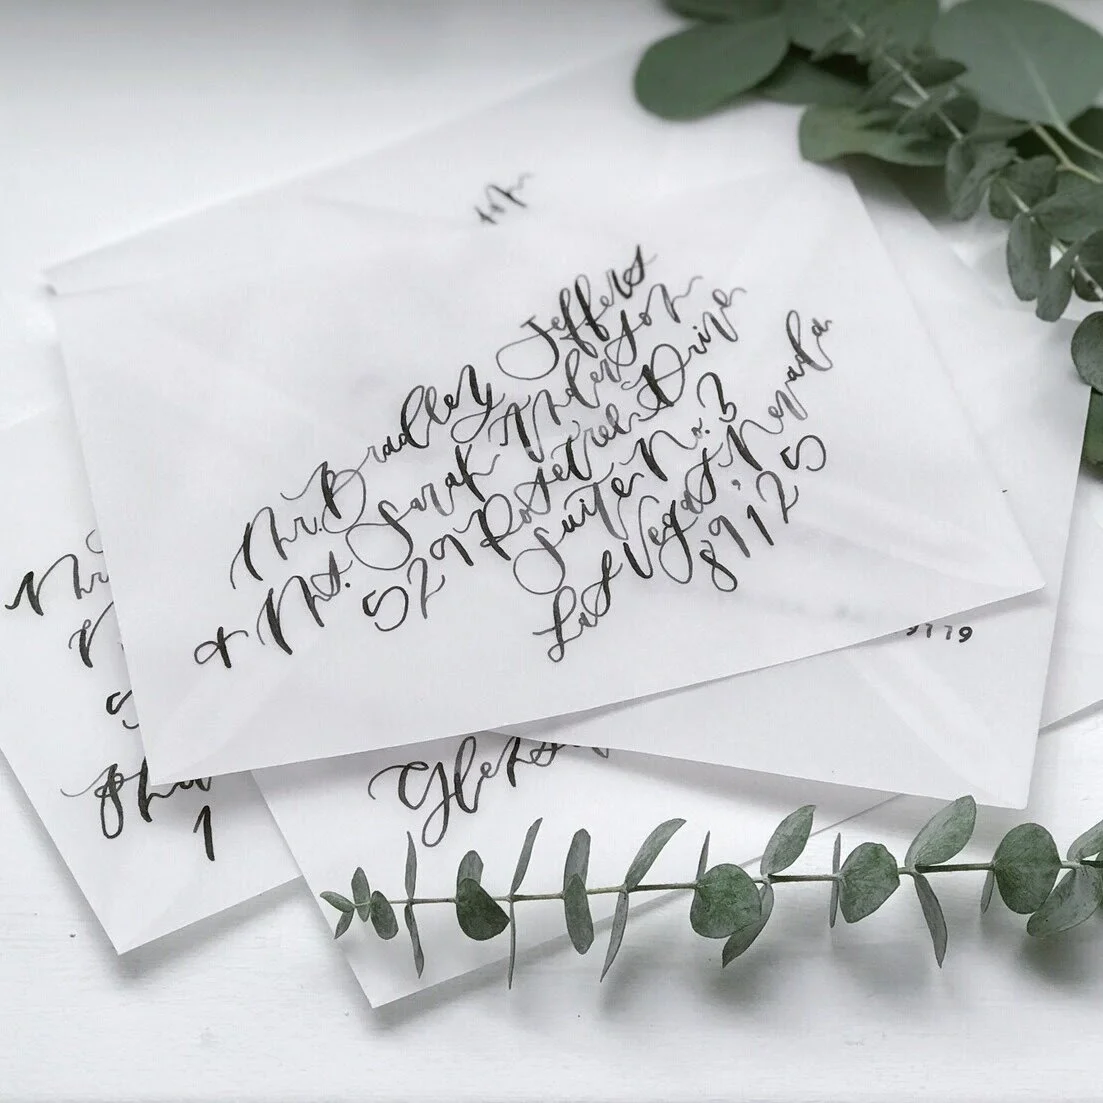 to
Mr. Bradley Jeffers
+ Ms. Sarah Anderson
529 Rosetree Drive
Suite No. 3
Las Vegas, Nevada
89125
Mr
1
Glen
9779